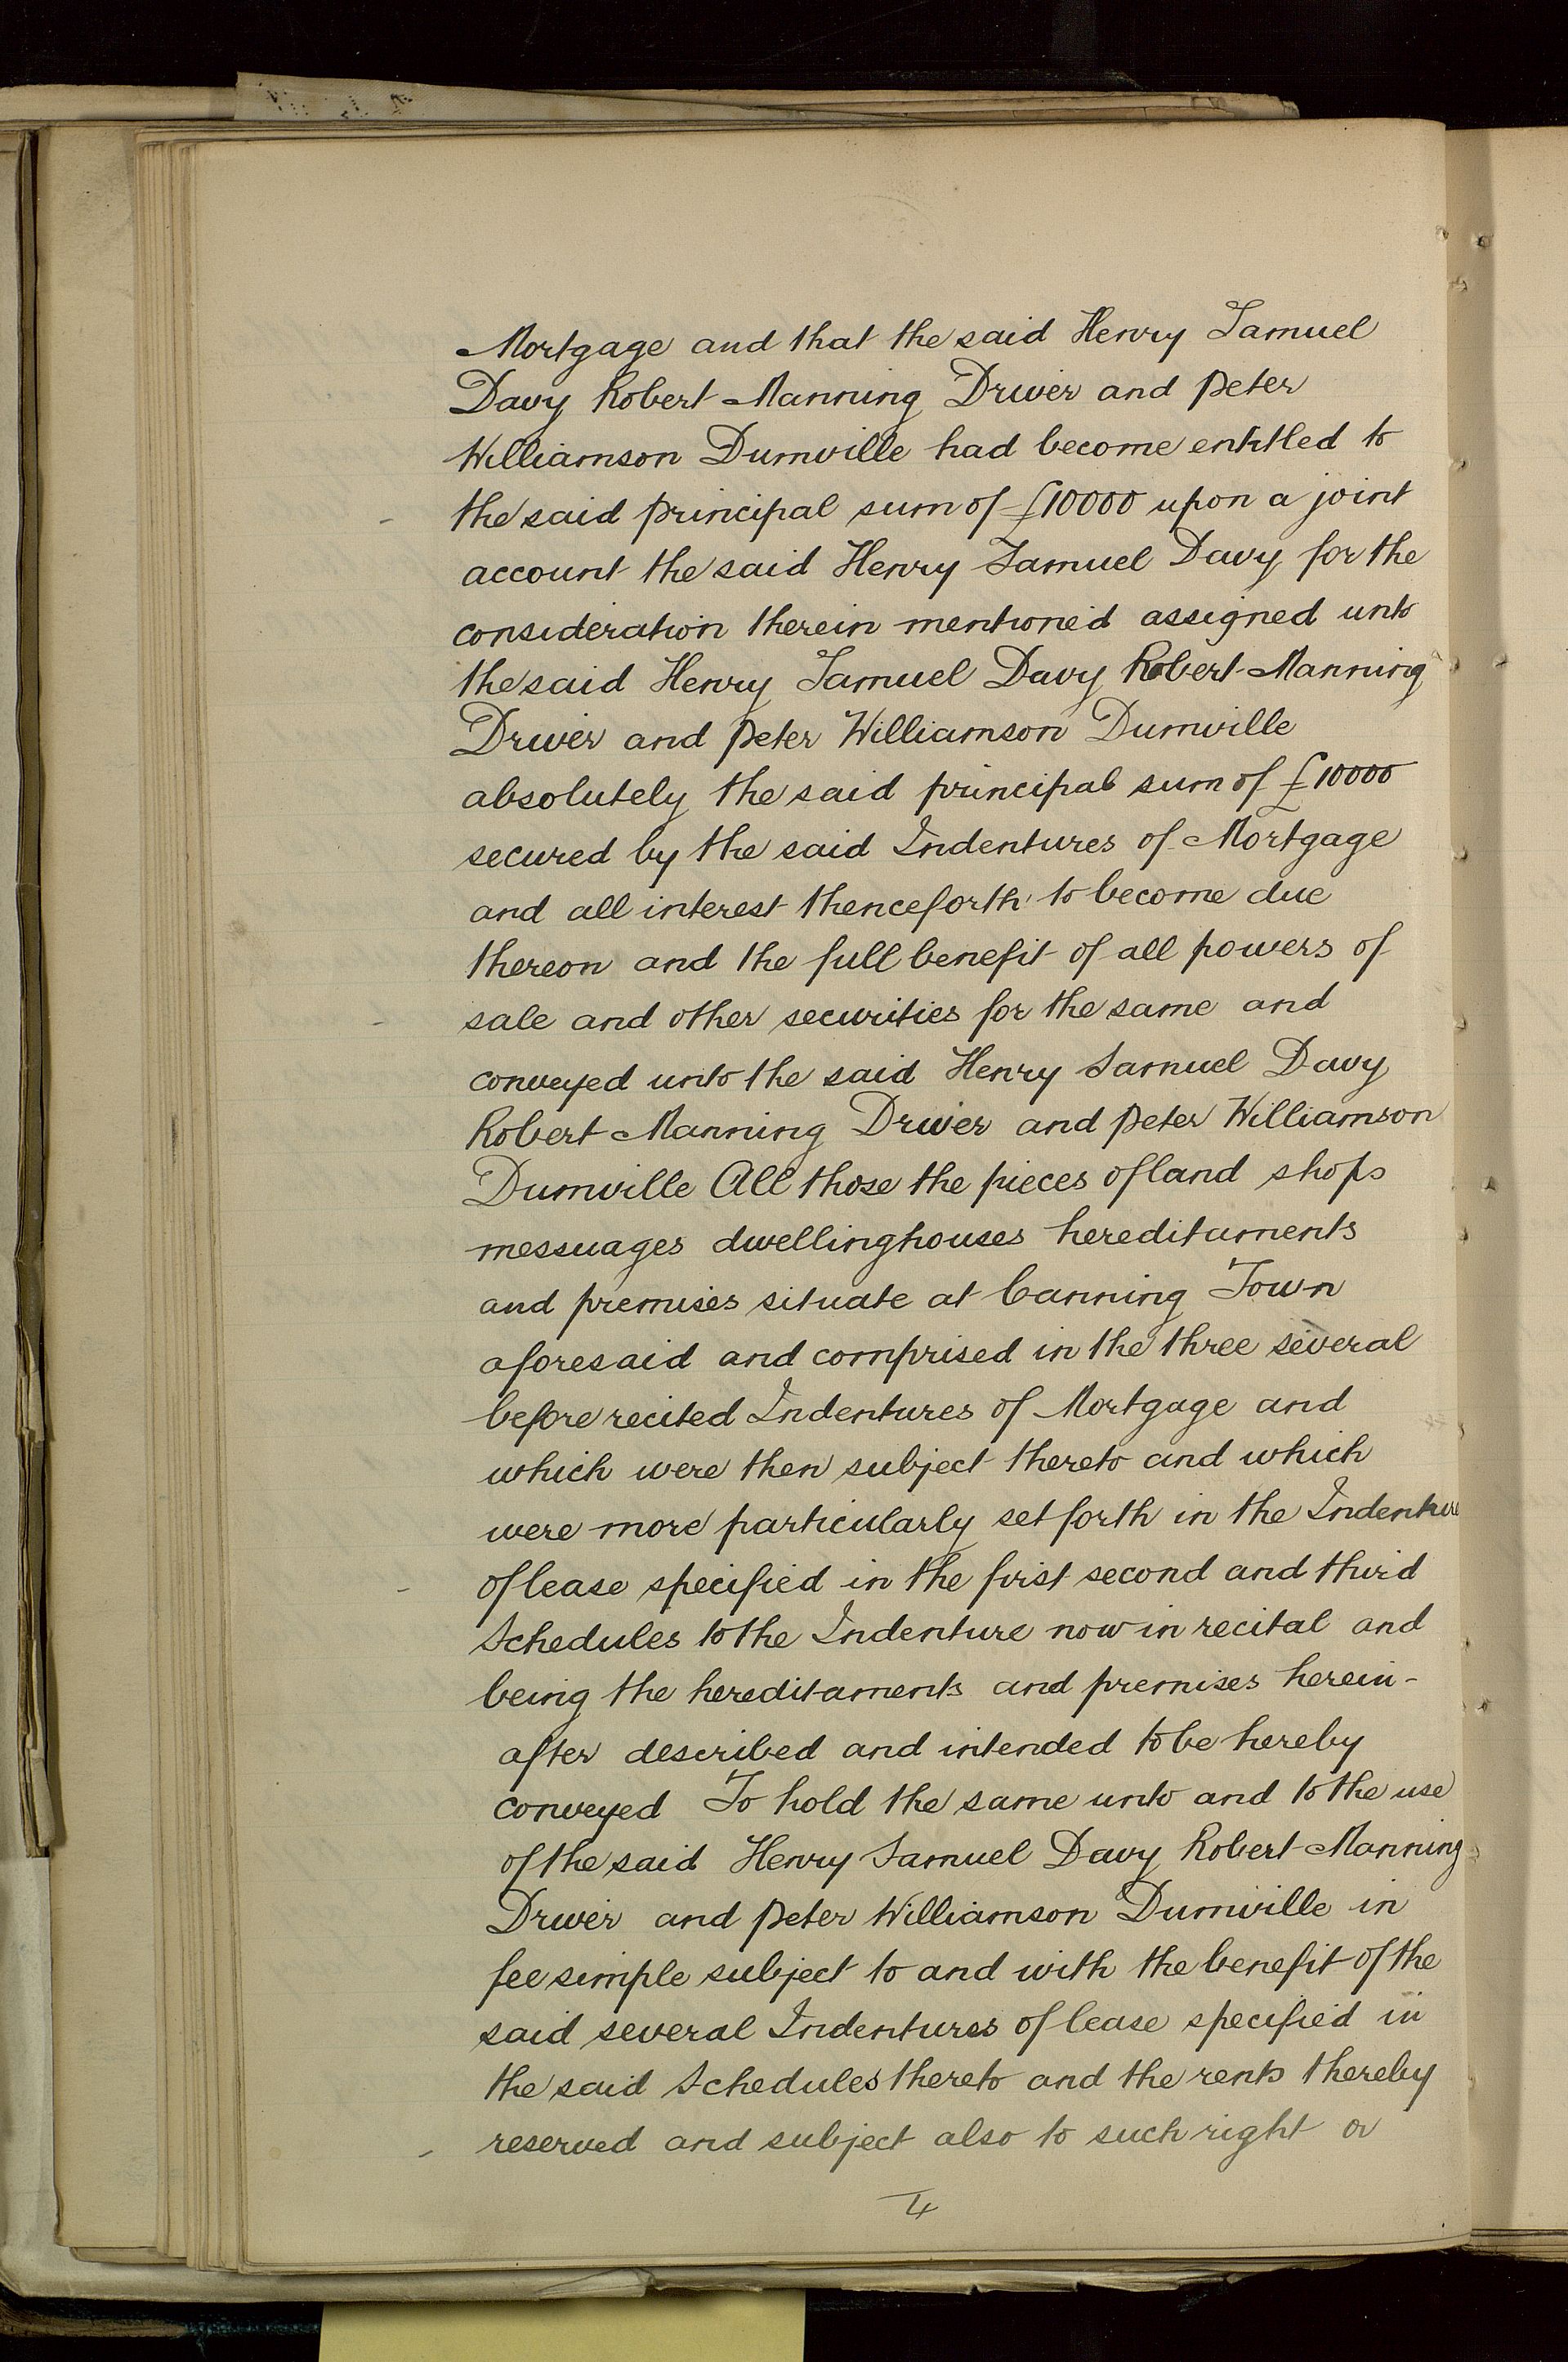 Mortgage and that the said Henry Samuel
Davy Robert Manning Driver and Peter
Williamson Dumville had become entitled to
the said principal sum of £10000 upon a joint
account the said Henry Samuel Davy for the
consideration therein mentioned assigned unto
the said Henry Samuel Davy Robert Manning
Driver and Peter Williamson Dumville
absolutely the said principal sum of £10000
secured by the said Indentures of Mortgage
and all interest thenceforth to become due
thereon and the full benefit of all powers of
sale and other securities for the same and
conveyed unto the said Henry Samuel Davy
Robert Manning Driver and Peter Williamson
Dumville All those the pieces of land shops
messuages dwellinghouses hereditaments
and premises situate at Canning Town
aforesaid and comprised in the three several
before recited Indentures of Mortgage and
which were then subject thereto and which
were more particularly set forth in the Indenture
of lease specified in the first second and third
Schedules to the Indenture now in recital and
being the hereditaments and premises herein-
after described and intended to be hereby
conveyed To hold the same unto and to the use
of the said Henry Samuel Davy Robert Manning
Driver and Peter Williamson Dumville in
fee simple subject to and with the benefit of the
said several Indentures of lease specified in
the said Schedules thereto and the rents thereby
reserved and subject also to such right or
4